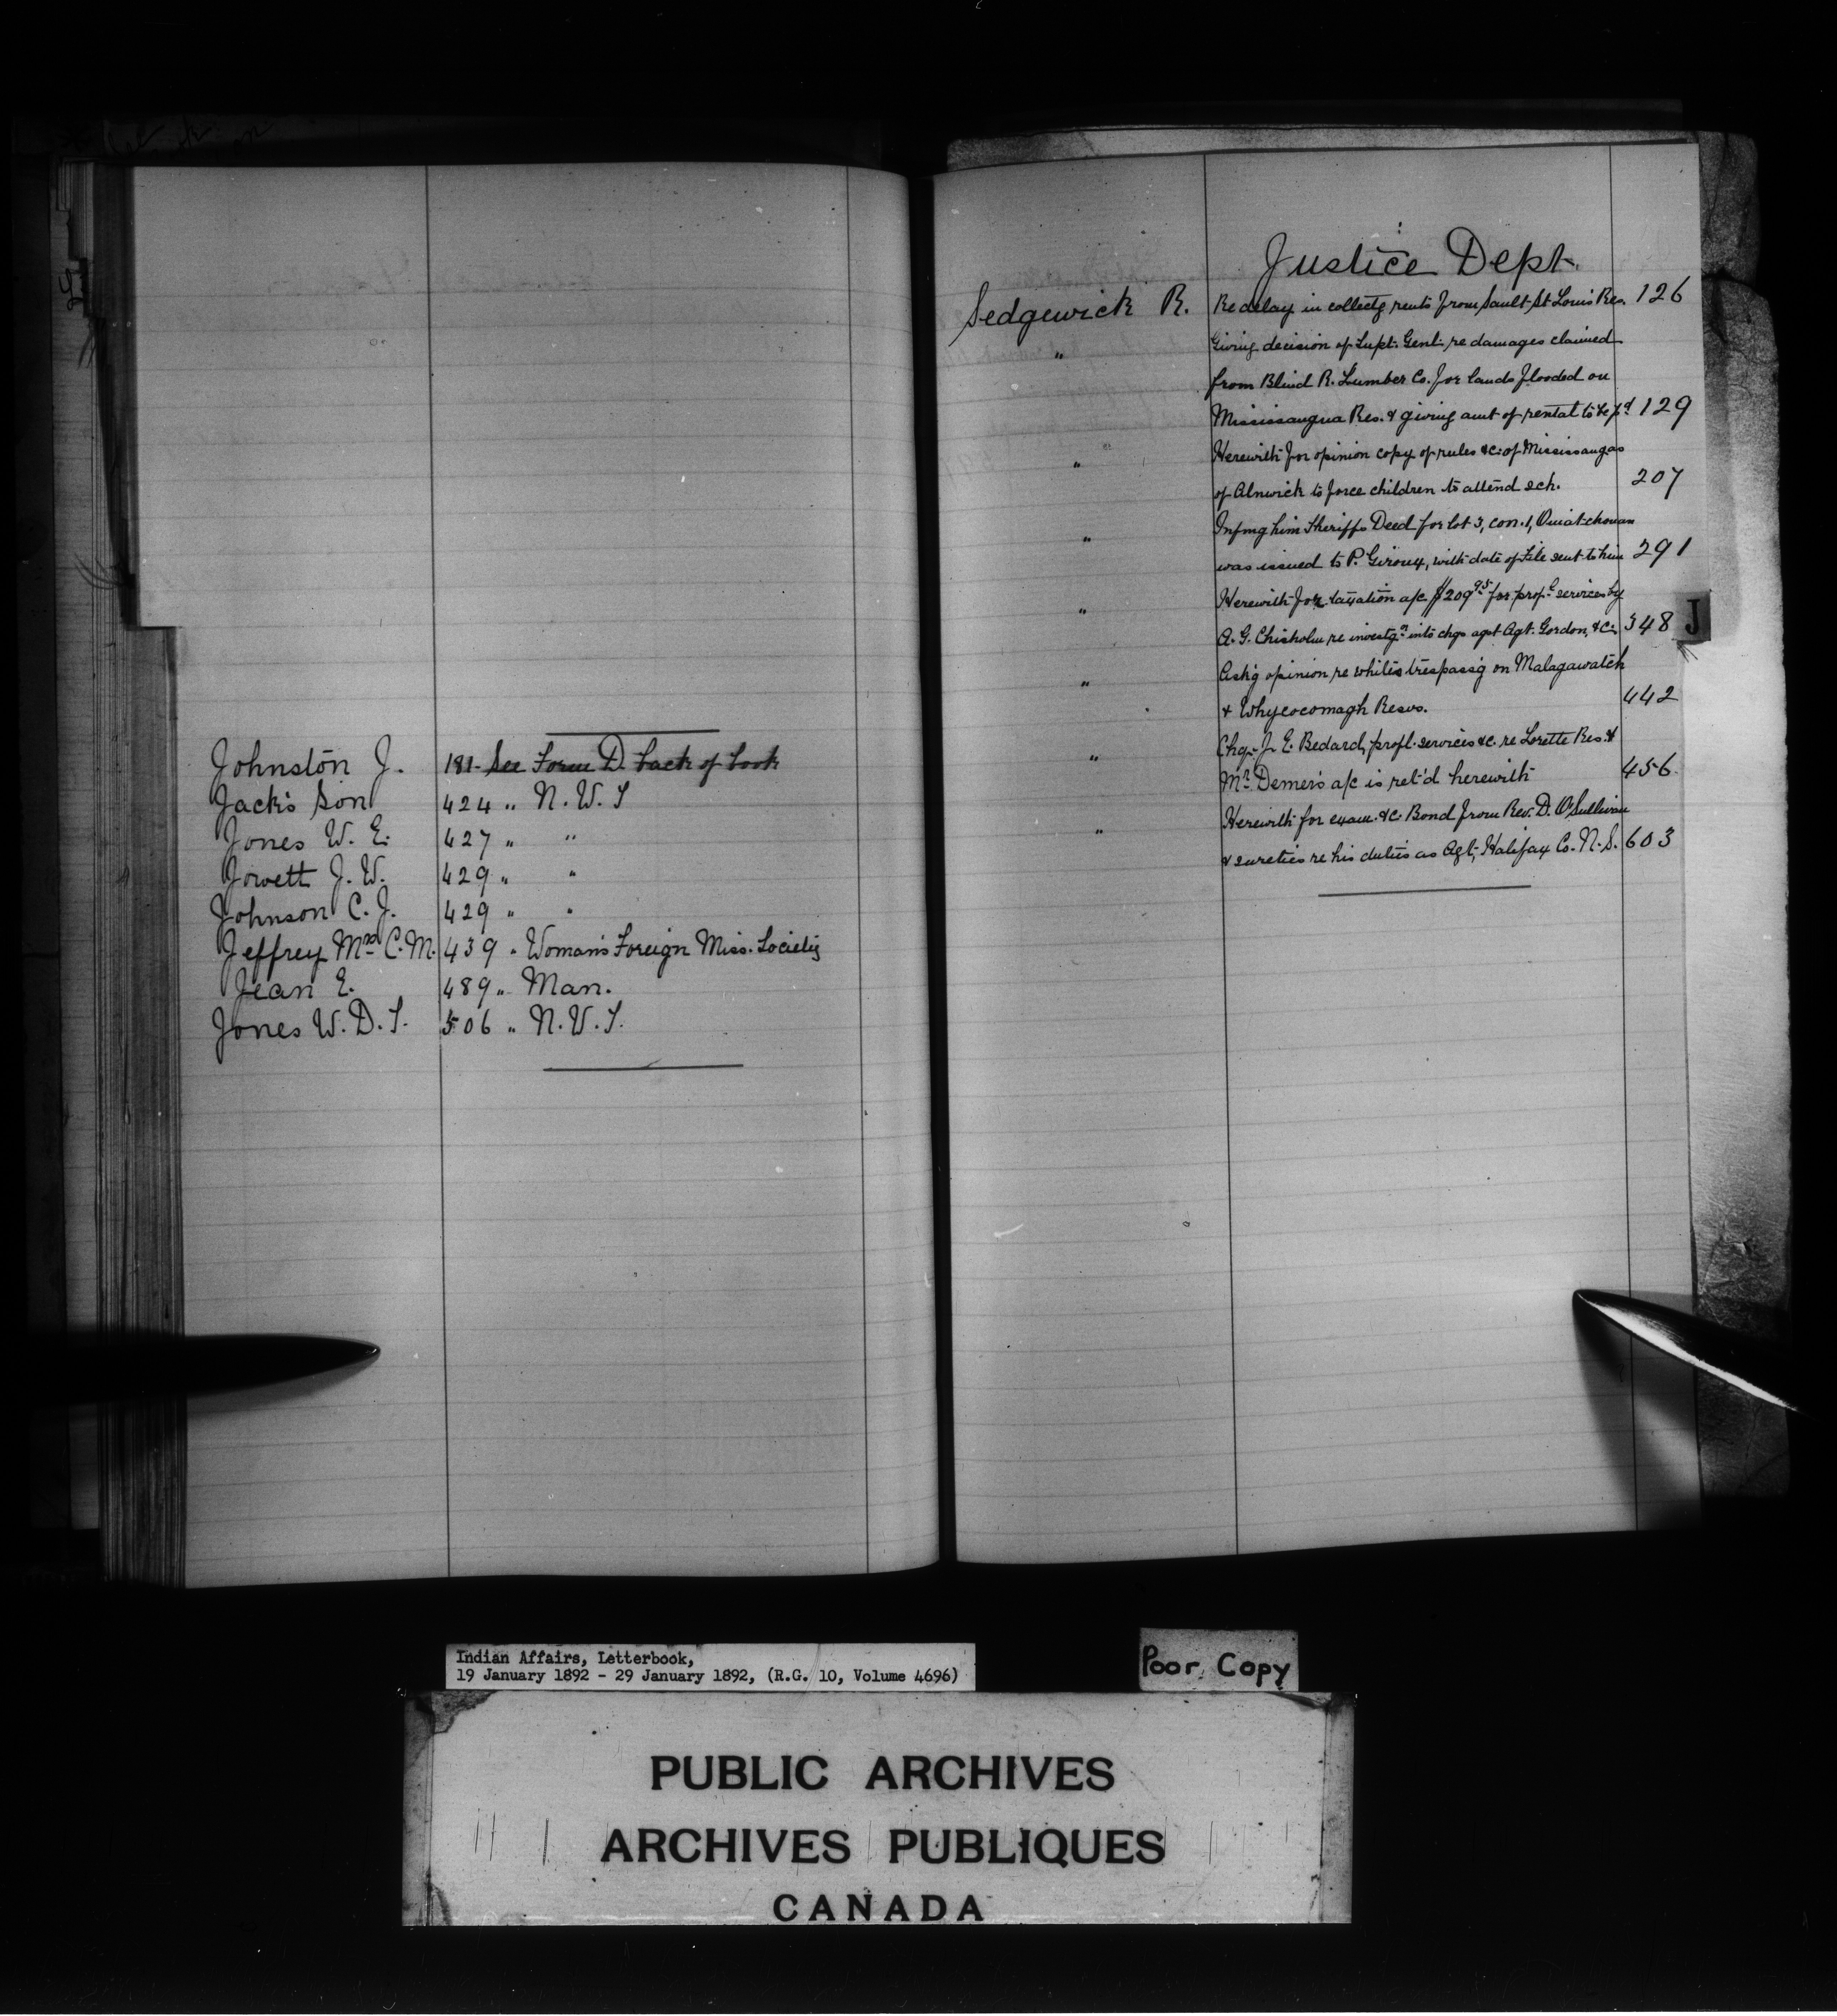 Johnston J. 181 - See Form D. back of book
Jack's Son 424 " N. W. T
Jones W. E. 427 " "
Jowett J. W. 429 " "
Johnson C. J. 429 " "
Jeffrey Mrs C. M. 439 " Woman's Foreign Miss. Society
Jean E. 489 " Man.
Jones W. D. S. 506 " N. W. T.
Justice Dept.
Sedgewick R. Re delay in collectg rents from Sault St Louis Res. 126
" Giving decision of Supt. Genl. re damages claimed
from Blind R. Lumber Co. for lands flooded on
Mississaugua Res. & giving amt of rental to be pd 129
" Herewith for opinion copy of rules &c. of Mississaugas
of Alnwick to force children to attend sch. 207
" Infmg him Sheriff's Deed for lot 3, con. 1, Ouiatchouan
was issued to P. Giroux, with date of File sent to him 291
" Herewith for taxation a/c $209.95 for profl services by
A. G. Chisholm re investgn into chgs agst Agt. Gordon, &c. 348
J
" Ask'g opinion re whites trespass'g on Malagawatch
& Whycocomagh Resvs. 442
" Chq. J. E. Bedard, profl. services &c. re Lorette Res. &
Mr Demers a/c is ret'd herewith 456
" Herewith for exam. &c. Bond from Rev. D. O'Sullivan
& sureties re his duties as Agt, Halifax Co. N. S. 603
Indian Affairs, Letterbook,
19 January 1892 - 29 January 1892, (R.G. 10, Volume 4696)
Poor Copy
PUBLIC ARCHIVES
ARCHIVES PUBLIQUES
CANADA